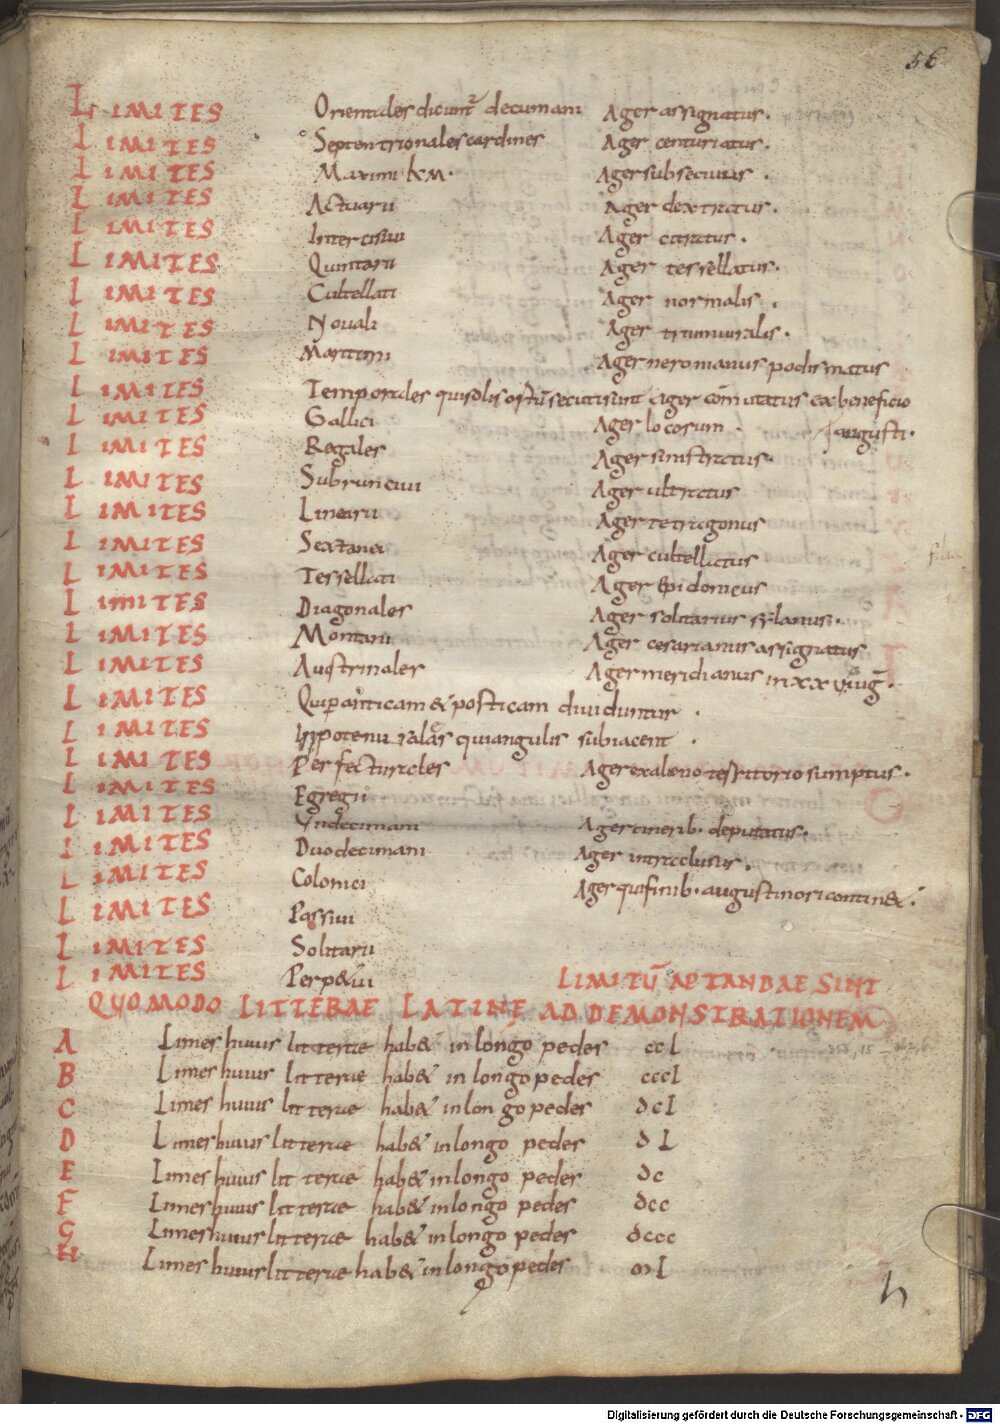 56
LIMITES Orientales dicunt² decumani Ager assignatus.
LIMITES Septentrionales cardines Ager centuriatus.
LIMITES Maximi KM. Ager subsecivus.
LIMITES Actuarii Ager dextratus.
LIMITES Intercisivi Ager citratus.
LIMITES Quintarii Ager tessellatus.
LIMITES Cultellati Ager normalis.
LIMITES Novali Ager triumviralis.
LIMITES Maritimi Ager neromanus podismatus
LIMITES Temporales qui solis ortū secuti sunt Ager cōmutatus ex beneficio
LIMITES Gallici Ager locorum. augusti.
LIMITES Regales Ager sinistratus.
LIMITES Subruncivi Ager ultratus
LIMITES Linearii Ager tetragonus
LIMITES Sextanei Ager cultellatus
LIMITES Tessellati Ager epidoneus
LIMITES Diagonales Ager solitarius syllanus.
LIMITES Montani Ager cesarianus assignatus
LIMITES Austrinales Ager meridianus in xx
LIMITES Qui p anticam & posticam dividuntur.
LIMITES qui angulis subiacent.
LIMITES Perfecturales Ager ex alieno territorio sumptus.
LIMITES Egregii
LIMITES Undecimani Ager cinerib. deputatus.
LIMITES Duodecimani Ager intraclusus.
LIMITES Colonici Ager qui finib. augustinori contin&.
LIMITES Passivi
LIMITES Solitarii
LIMITES LIMITŪ APTANDAE SINT
QUOMODO LITTERAE LATINE AD DEMONSTRATIONEM
A Limes huius litterae hab& in longo pedes ccL
B Limes huius litterae hab& in longo pedes cccL
C Limes huius litterae hab& in longo pedes dcL
D Limes huius litterae hab& in longo pedes dL
E Limes huius litterae hab& in longo pedes dc
F Limes huius litterae hab& in longo pedes dcc
G Limes huius litterae hab& in longo pedes dccc
H Limes huius litterae hab& in longo pedes
Digitalisierung gefördert durch die Deutsche Forschungsgemeinschaft - DFG